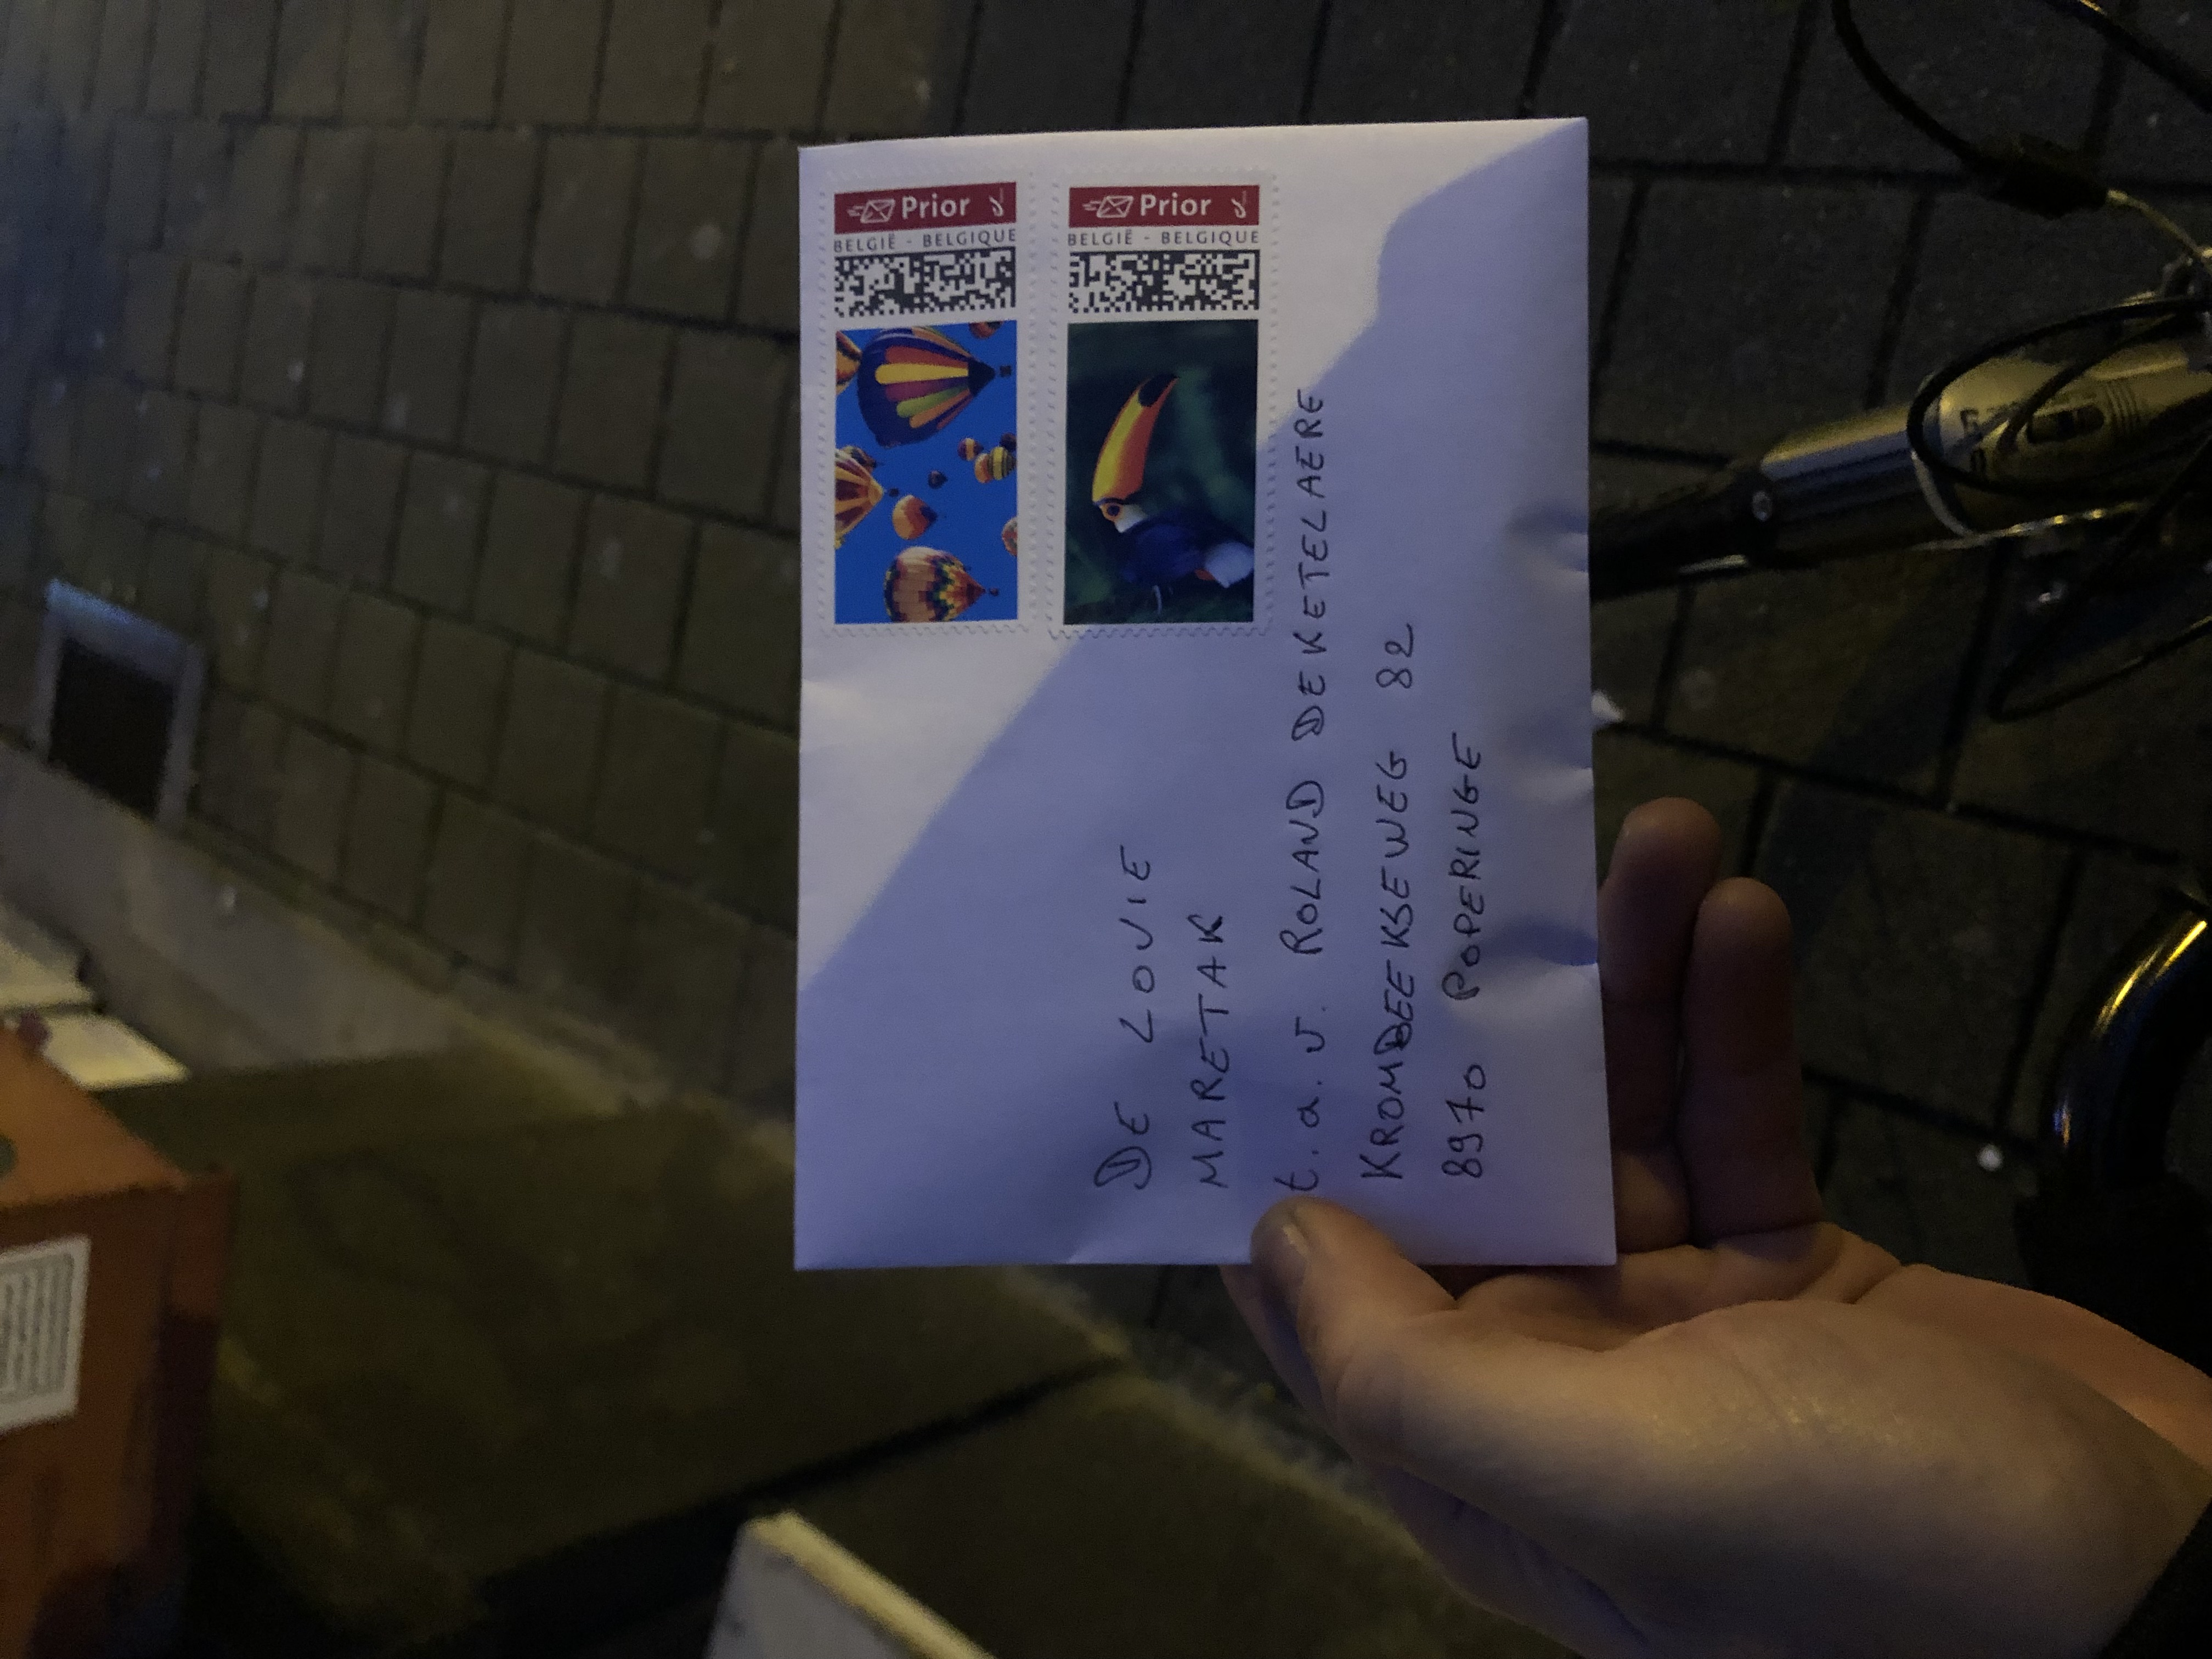 Prior
BELGIË - BELGIQUE
Prior
BELGIË - BELGIQUE
DE LOVIE
MARETAK
t.a.v. ROLAND DEKETELAERE
KROMBEEKSEWEG 82
8970 POPERINGE